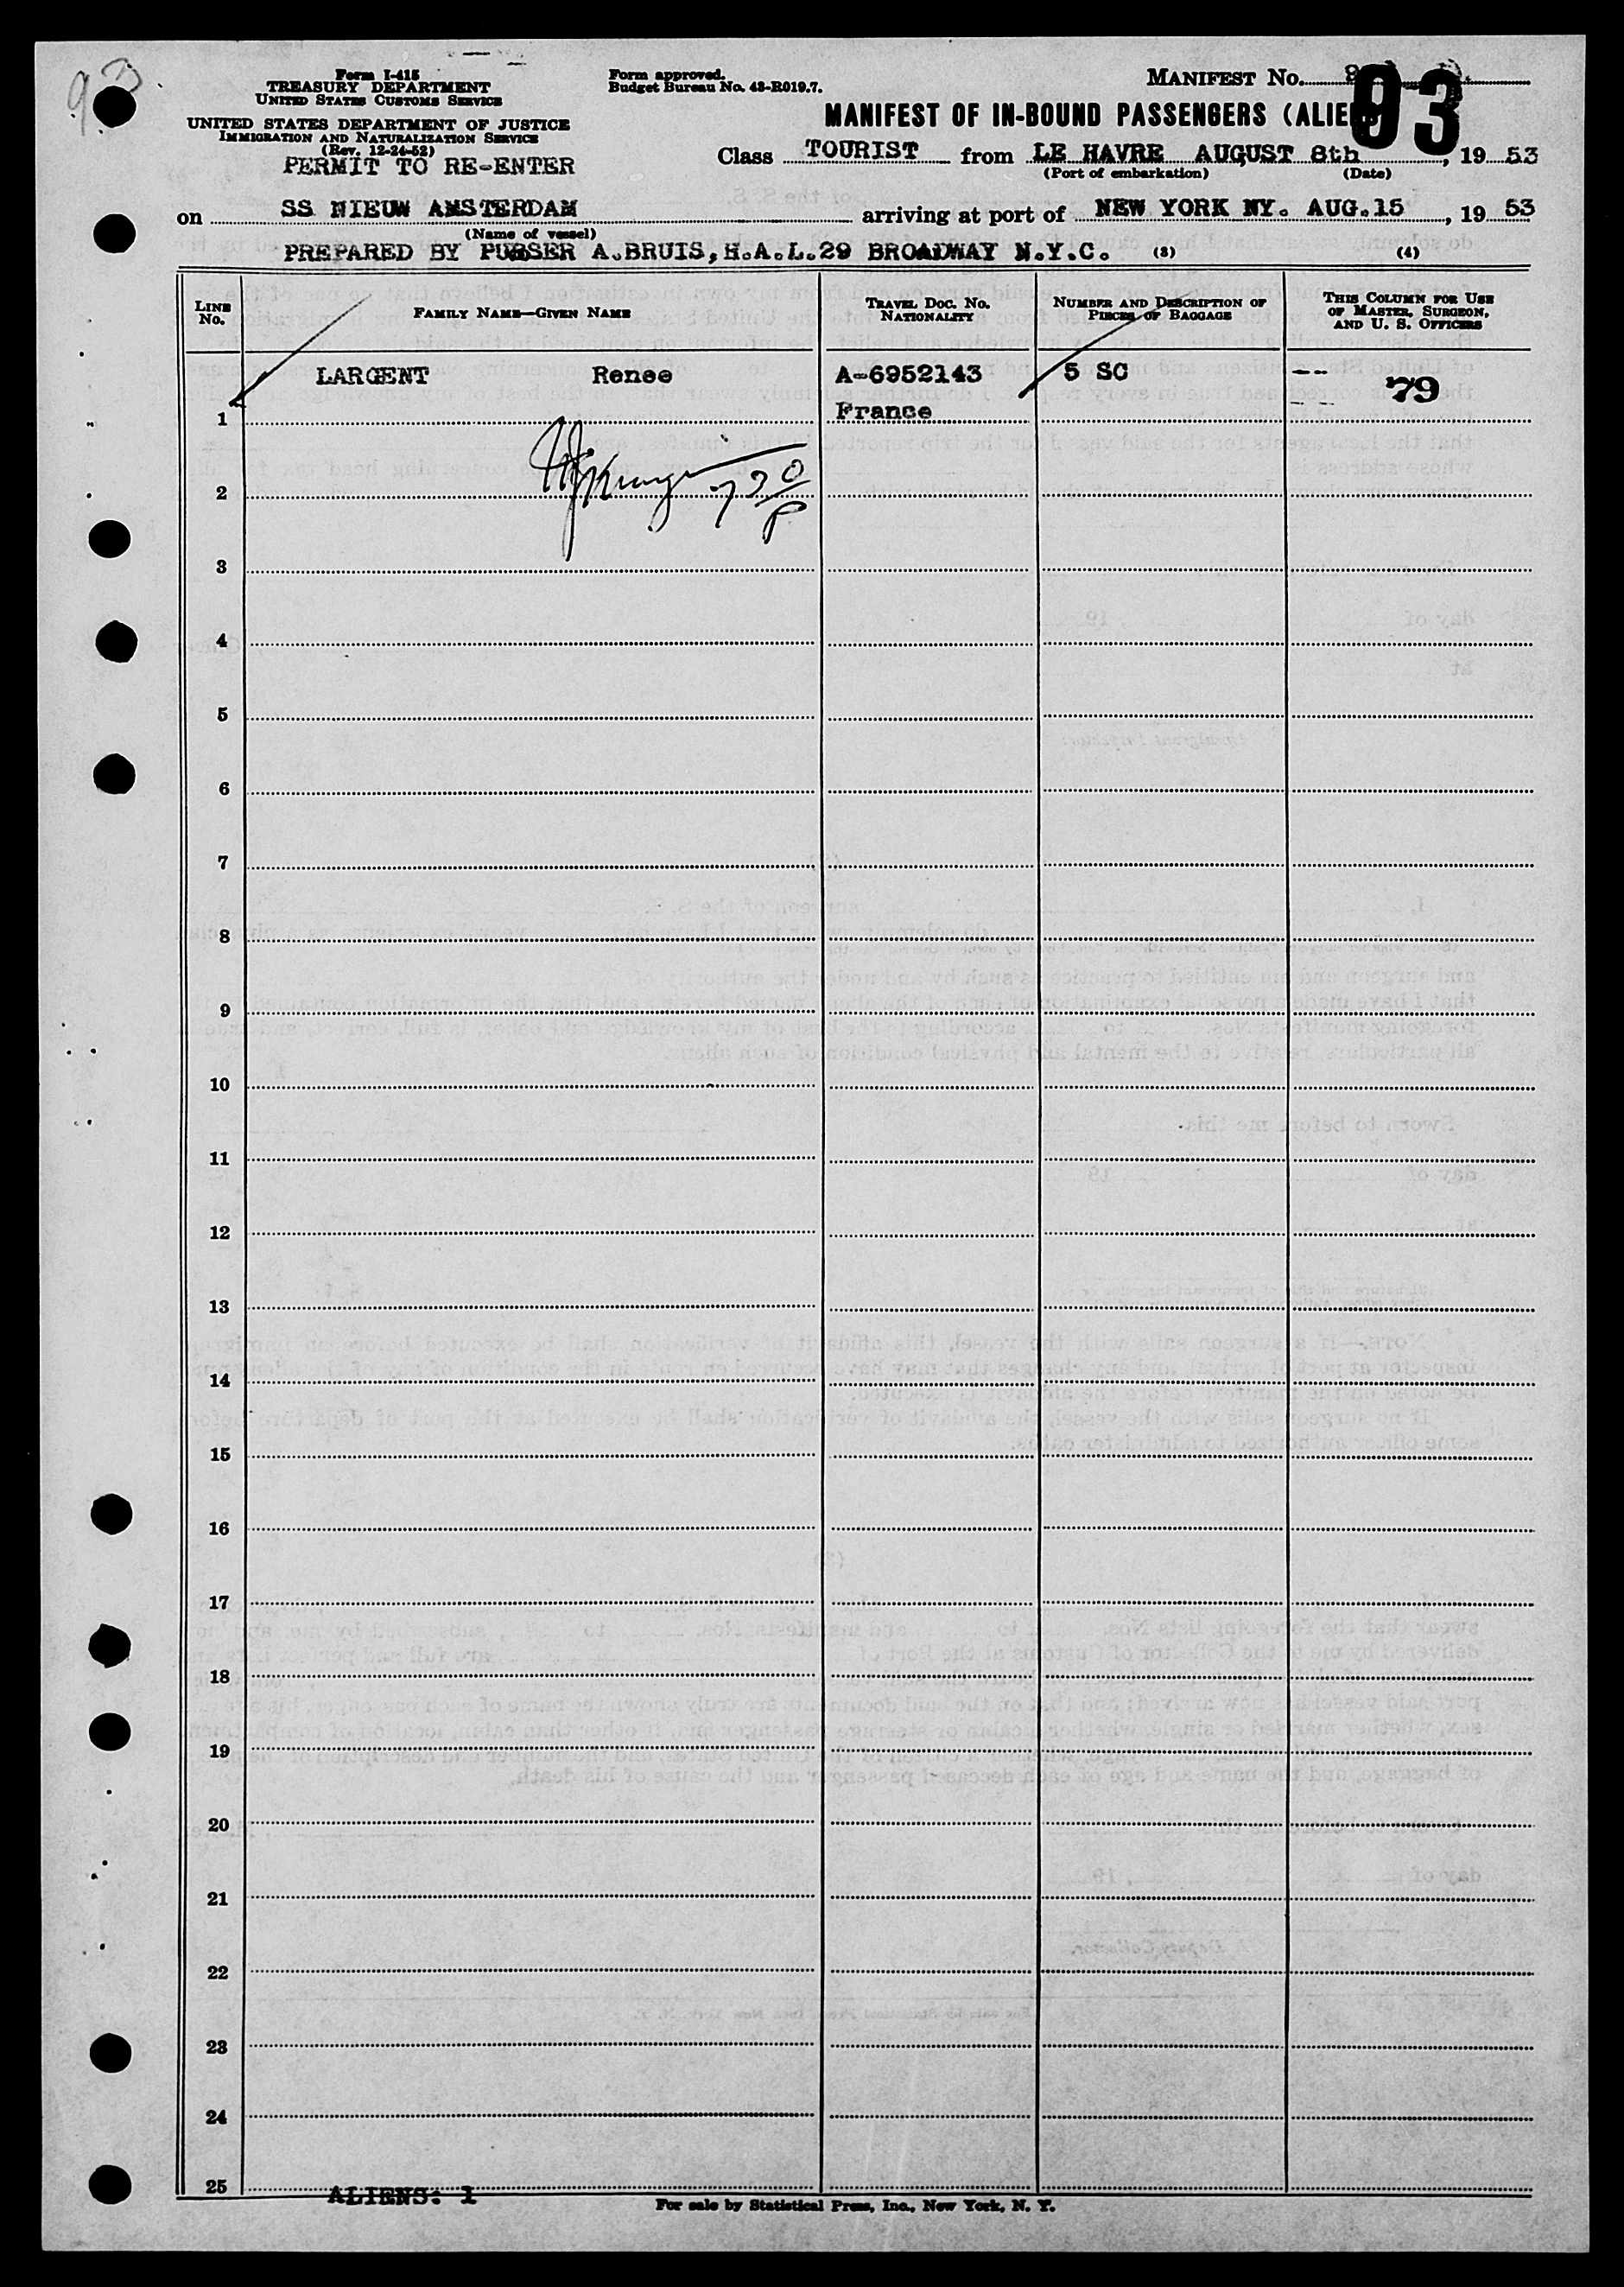 93
Form I-415
TREASURY DEPARTMENT
UNITED STATES CUSTOMS SERVICE
UNITED STATES DEPARTMENT OF JUSTICE
IMMIGRATION AND NATURALIZATION SERVICE
(Rev. 12-24-52)
PERMIT TO RE-ENTER
Form approved.
Budget Bureau No. 43-R019.7.
MANIFEST No. 93
MANIFEST OF IN-BOUND PASSENGERS (ALIE
Class TOURIST from LE HAVRE AUGUST 8th, 19 53
(Port of embarkation) (Date)
on SS NIEUW AMSTERDAM arriving at port of NEW YORK NY. AUG.15, 19 53
(Name of vessel)
PREPARED BY PURSER A.BRUIS, H.A.L.29 BROADWAY N.Y.C. (3) (4)
LINE No. FAMILY NAME—GIVEN NAME TRAVEL DOC. NO. NATIONALITY NUMBER AND DESCRIPTION OF PIECES OF BAGGAGE THIS COLUMN FOR USE OF MASTER, SURGEON, AND U. S. OFFICERS
LARGENT Renee A-6952143 5 SC -- 79
1 France
2 7 30 P
3
4
5
6
7
8
9
10
11
12
13
14
15
16
17
18
19
20
21
22
23
24
25
ALIENS: 1
For sale by Statistical Press, Inc., New York, N. Y.